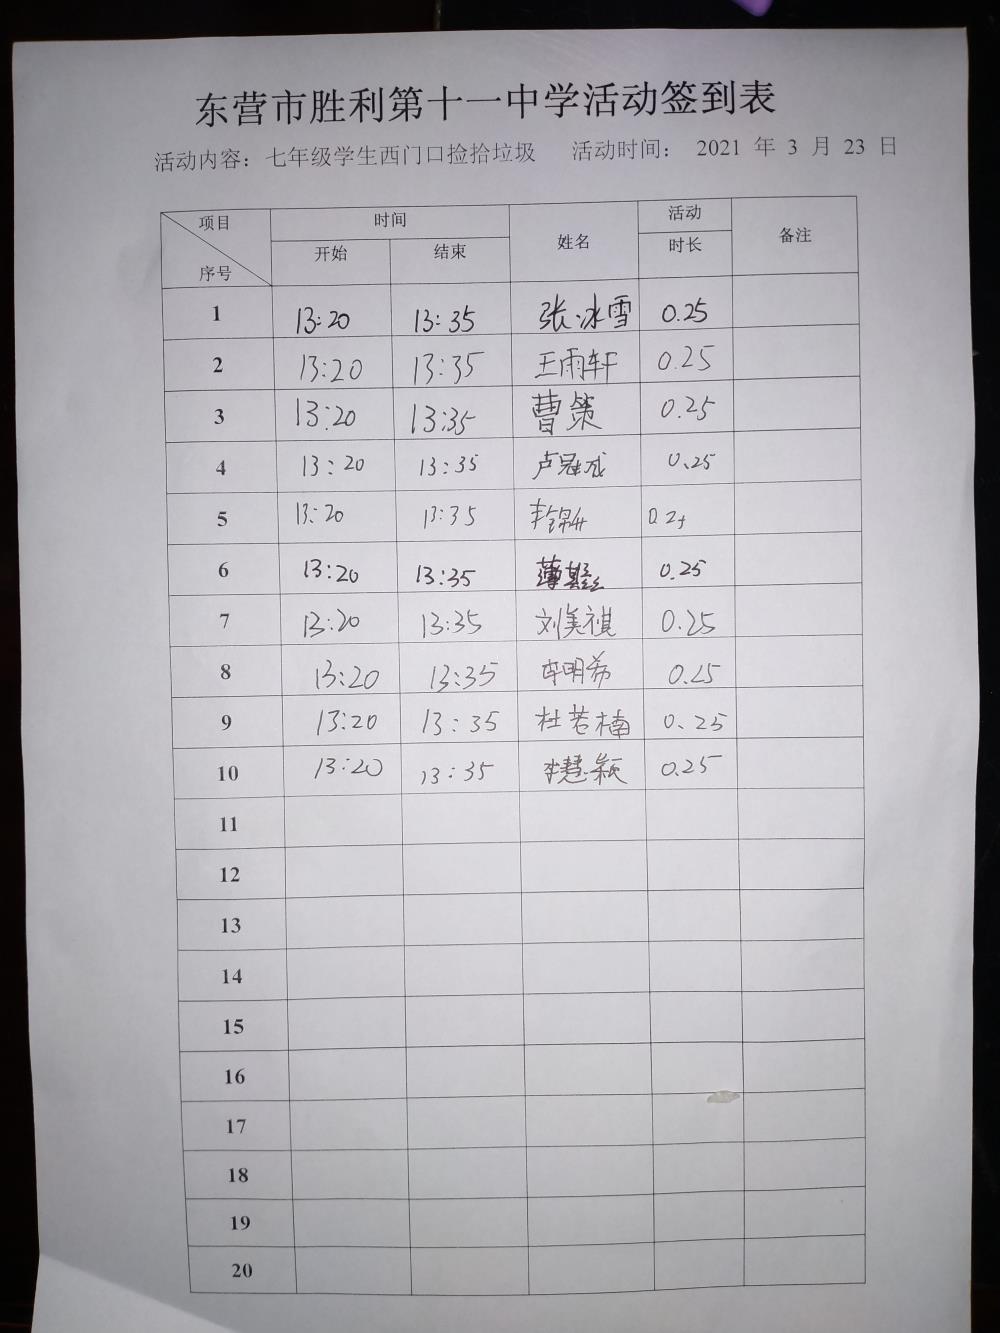 东营市胜利第十一中学活动签到表
活动内容：七年级学生西门口捡拾垃圾 活动时间： 2021 年 3 月 23 日
项目 时间 姓名 活动 备注
序号 开始 结束 时长
1 13:20 13:35 张冰雪 0.25
2 13:20 13:35 王雨轩 0.25
3 13:20 13:35 曹策 0.25
4 13:20 13:35 卢冠成 0.25
5 13:20 13:35 0.25
6 13:20 13:35 0.25
7 13:20 13:35 刘美祺 0.25
8 13:20 13:35 李明芮 0.25
9 13:20 13:35 杜若楠 0.25
10 13:20 13:35 李慧颖 0.25
11
12
13
14
15
16
17
18
19
20